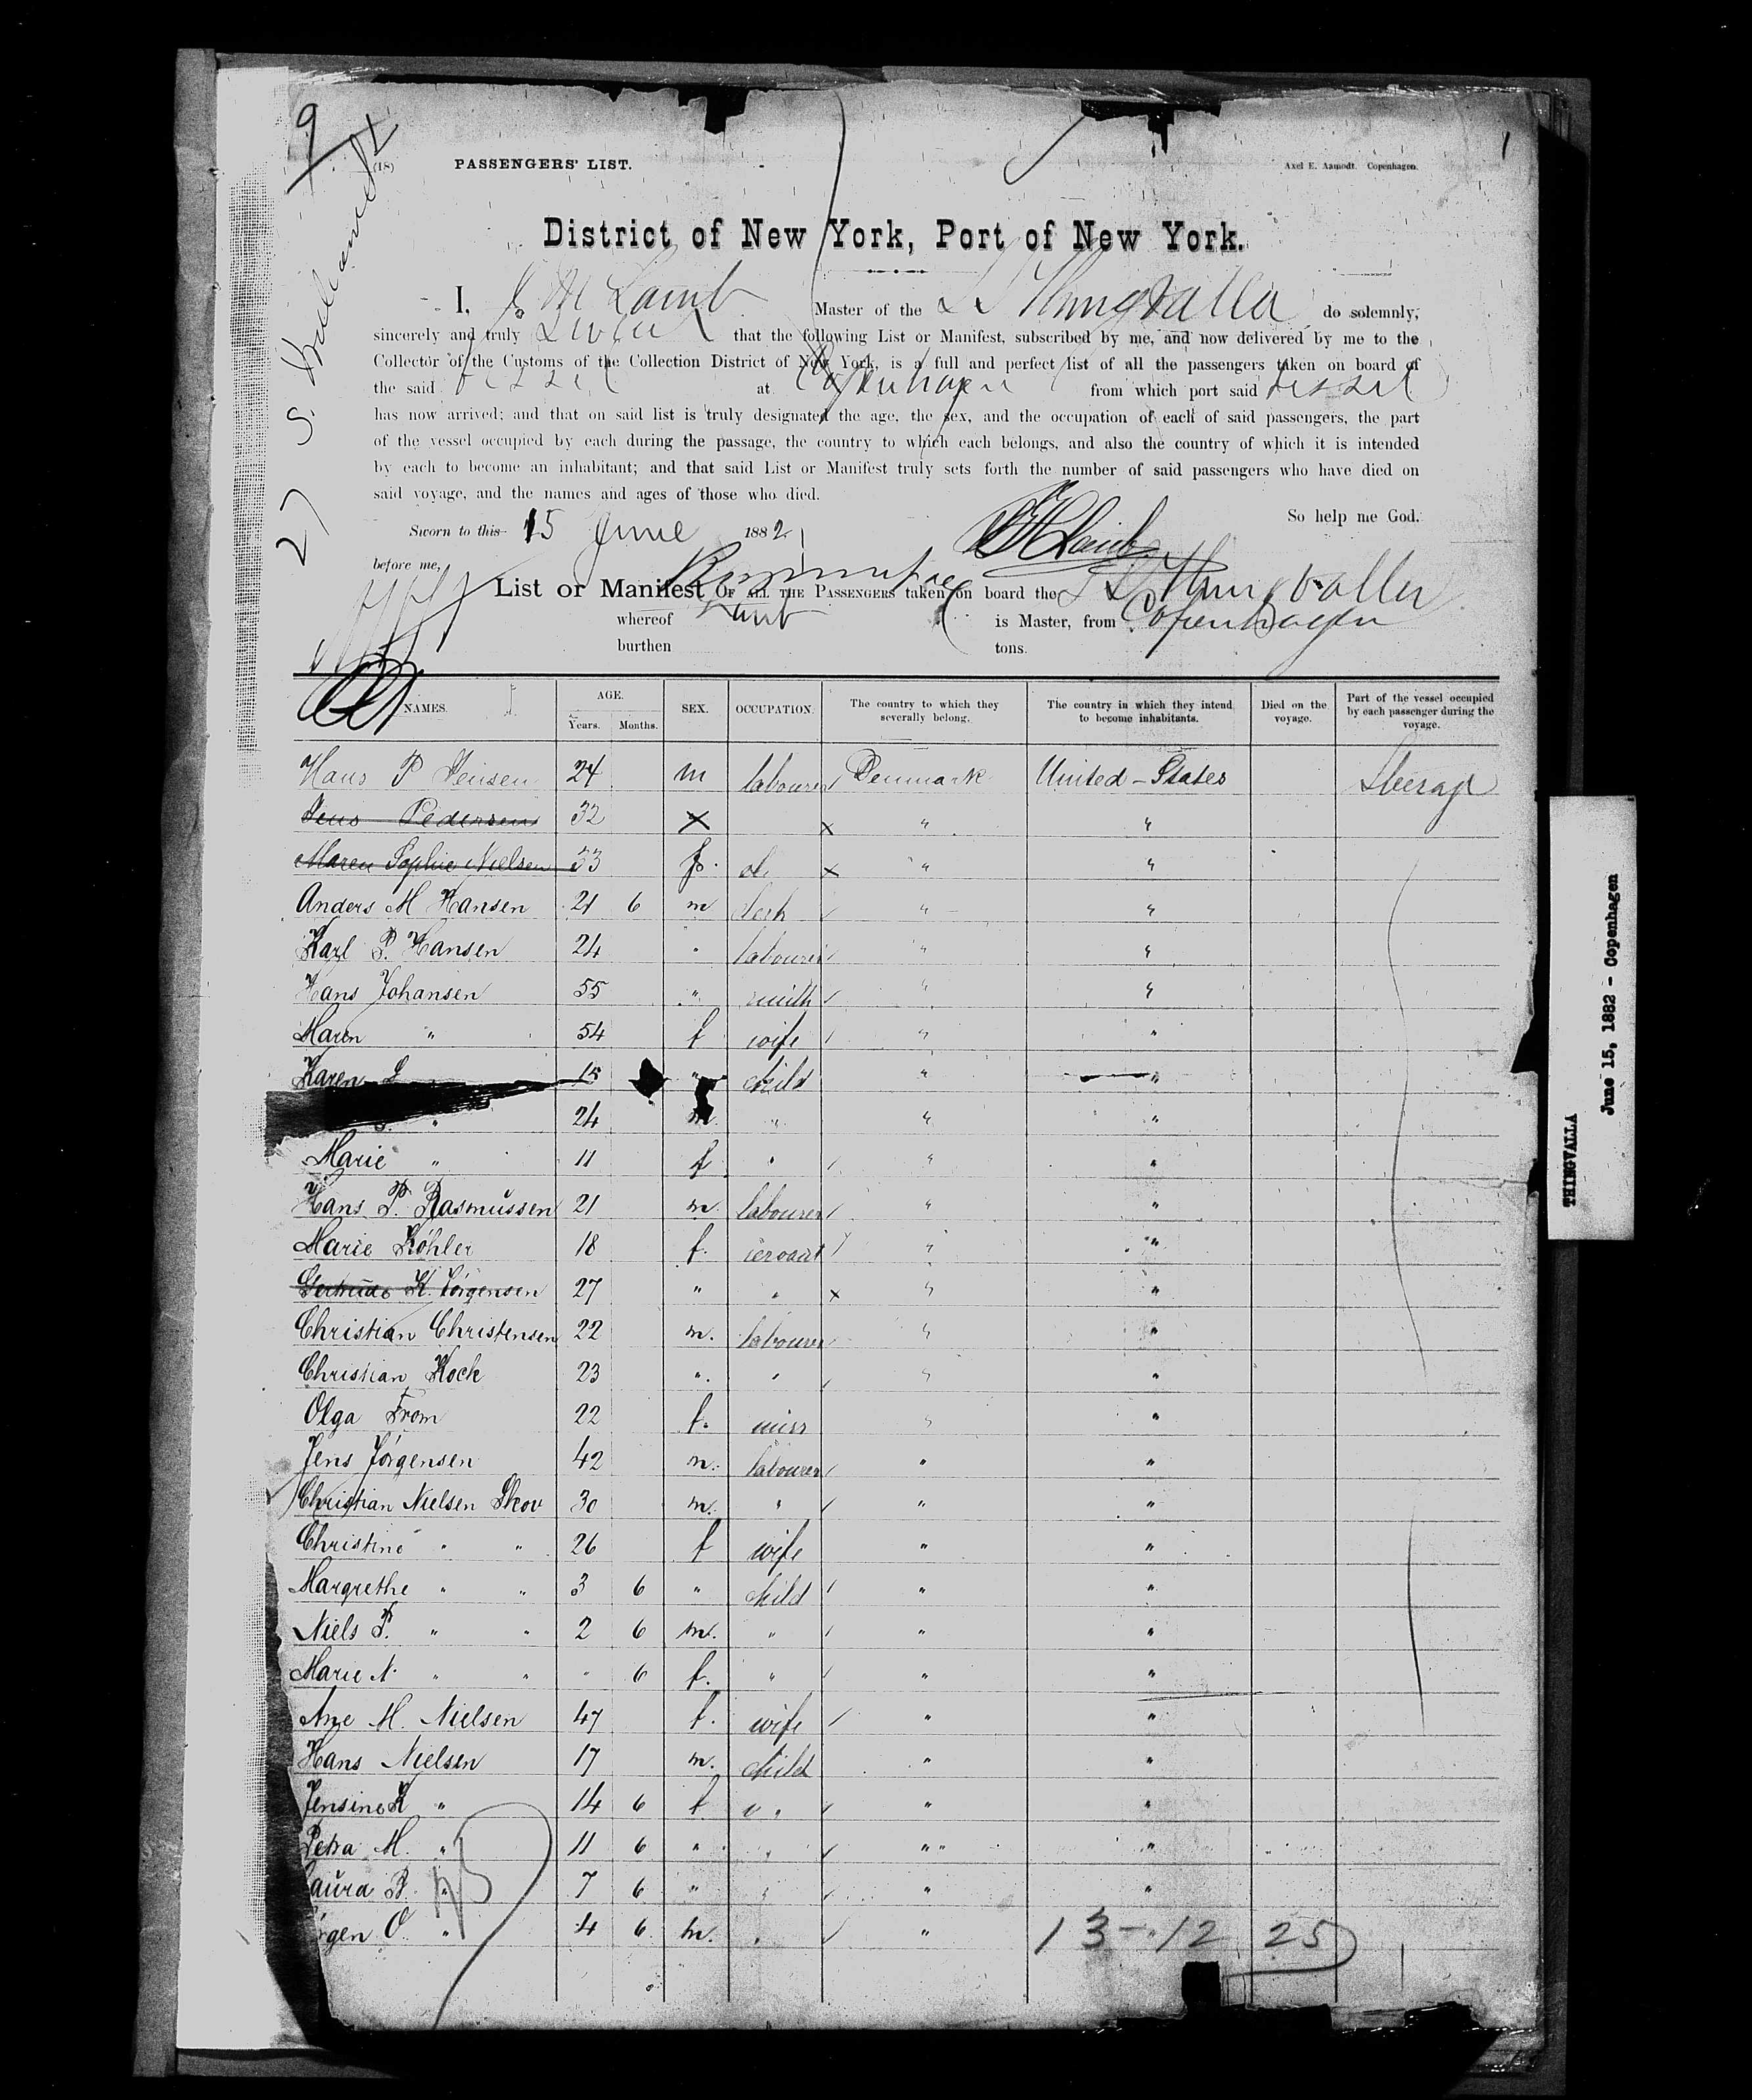 9
(18) PASSENGERS' LIST. Axel E. Aamodt. Copenhagen.
1
District of New York, Port of New York.
I, Lamb Master of the SS Thingvalla do solemnly,
sincerely and truly swear that the following List or Manifest, subscribed by me, and now delivered by me to the
Collector of the Customs of the Collection District of New York, is a full and perfect list of all the passengers taken on board of
the said vessel at Copenhagen from which port said vessel
has now arrived; and that on said list is truly designated the age, the sex, and the occupation of each of said passengers, the part
of the vessel occupied by each during the passage, the country to which each belongs, and also the country of which it is intended
by each to become an inhabitant; and that said List or Manifest truly sets forth the number of said passengers who have died on
said voyage, and the names and ages of those who died.
So help me God.
Sworn to this 15 June 1882 Lamb
before me,
List or Manifest OF ALL THE PASSENGERS taken on board the SS Thingvalla
whereof Lamb is Master, from Copenhagen
burthen tons.
NAMES. AGE. Years. Months. SEX. OCCUPATION. The country to which they severally belong. The country in which they intend to become inhabitants. Died on the voyage. Part of the vessel occupied by each passenger during the voyage.
Hans P Jensen 24 m labourer Denmark United-States Steerage
Jens Pedersen 32 x x " "
Maren Sophie Nielsen 33 f. do. x " "
Anders M Hansen 21 6 m " "
Karl P. Hansen 24 " labourer " "
Hans Johansen 55 " smith " "
Maren " 54 f wife " "
Karen 15 " child " "
" 24 m. " " "
Marie " 11 f " " "
Hans P. Rasmussen 21 m. labourer " "
Marie Köhler 18 f. servant " "
Gertrude K. Jörgensen 27 " " x " "
Christian Christensen 22 m. labourer " "
Christian Kock 23 " " " "
Olga From 22 f. miss " "
Jens Jörgensen 42 m. labourer " "
Christian Nielsen Skov 30 m. " " "
Christine " " 26 f wife " "
Margrethe " " 3 6 " child " "
Niels P. " " 2 6 m. " " "
Marie N. " " " 6 f. " " "
Ane M. Nielsen 47 f. wife " "
Hans Nielsen 17 m. child " "
Jensine K " 14 6 f " " "
Petra M. " 11 6 " " " "
aura B. " 7 6 " " " "
rgen O " 4 6 m. " "
13-12 25
THINGVALLA
June 15, 1882 - Copenhagen